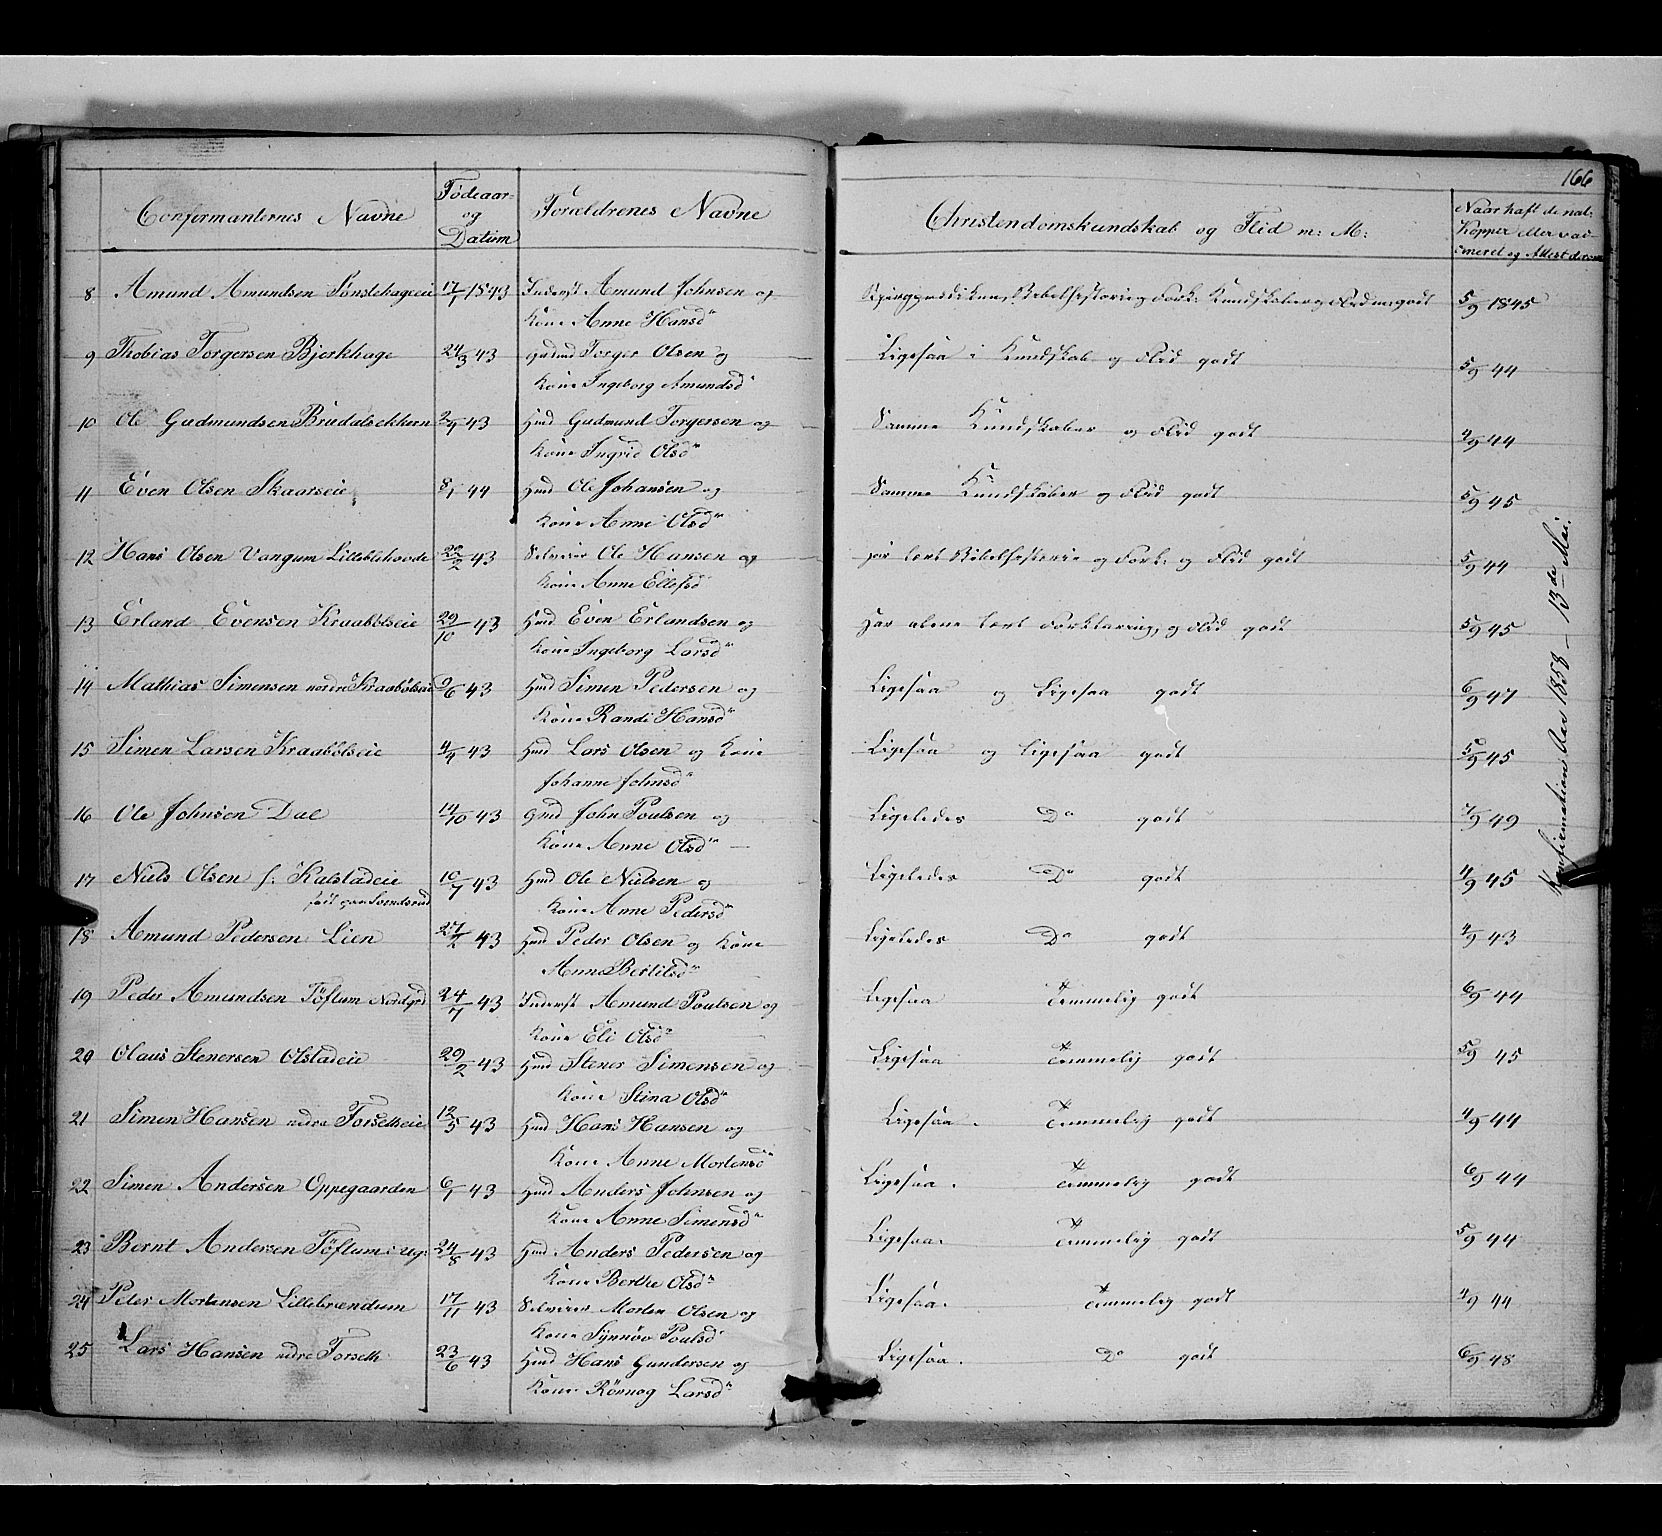 166
Confermanternes Navne
Fødeaar og Datum
Forældrenes Navne
Christendomskundskab og Flid m: M:
Naar haft de nat: Kopper eller vaccineret og Attest derom
8 Amund Amundsen 17/1 1843 Inderst Amund Johnsen og Bibelhistorie Fork: Kundskaber og Flid godt 5/9 1845
Kone Anne Hansd
9 Thobias Torgersen Bjerkhage 24/3 43 Torger Olsen og Ligesaa i Kundskab og Flid godt 5/9 44
Kone Ingeborg Amundsd
10 Ole Gudmundsen 2/4 43 Hmd Gudmund Torgersen og Samme Kundskaber og Flid godt 4/9 44
Kone Ingrid Olsd
11 Even Olsen Skaarseie 8/1 44 Hmd Ole Johansen og Samme Kundskaber og Flid godt 5/9 45
Kone Anne Olsd
12 Hans Olsen Vangum 22/2 43 Selveier Ole Hansen og har læst Bibelhistorie og Fork: og Flid godt 5/9 44
Kone Anne Ellefsd
13 Erland Evensen Kraabølseie 29/10 43 Hmd Even Erlandsen og har alene læst Forklaring, og Flid godt 5/9 45
Kone Ingeborg Larsd
14 Mathias Simensen nordre Kraabølseie 9/6 43 Hmd Simen Pedersen og Ligesaa og Ligesaa godt 6/9 47
Kone Randi Hansd
15 Simen Larsen Kraabølseie 4/9 43 Hmd Lars Olsen og Kone Ligesaa og Ligesaa godt 5/9 45
Johanne Johnsd
16 Ole Johnsen Dal 14/10 43 Gmd John Poulsen og Ligeledes Do godt 7/9 49
Kone Anne Olsd
17 Niels Olsen f: Kalstadeie 10/7 43 Hmd Ole Nielsen og Ligeledes Do godt 4/9 45
født paa Svendsrud Kone Anne Pedersd
18 Amund Pedersen Lien 27/2 43 Hmd Peder Olsen og Kone Ligeledes Do godt 4/9 43
Anne Bertilsd
19 Peder Amundsen Tøftum Nordgrd 24/7 43 Inderst Amund Poulsen og Ligesaa temmelig godt 6/9 44
Kone Eli Olsd
20 Olaus Stenersen Olstadeie 29/2 43 Hmd Stener Simensen og Ligesaa temmelig godt 5/9 45
Kone Stina Olsd
21 Simen Hansen ndre Forsetheie 12/5 43 Hmd Hans Hansen og Ligesaa. temmelig godt 4/9 44
Kone Anne Mortensd
22 Simen Andersen Oppegaarden 6/1 43 Hmd Anders Johnsen og Ligesaa. temmelig godt 6/9 44
Kone Anne Simensd
23 Bernt Andersen Tøftum 24/8 43 Hmd Anders Pedersen og Ligesaa. temmelig godt 5/9 44
Kone Berthe Olsd
24 Peter Mortensen Lillebrændum 17/11 43 Selveier Morten Olsen og Ligesaa. temmelig godt 4/9 44
Kone Synnøv Poulsd
25 Lars Hansen ndre Forseth 23/6 43 Hmd Hans Gundersen og Ligesaa. Do godt 6/9 48
Kone Rønnog Larsd
Konfirmation: Aar 1858 – 13de Mai.